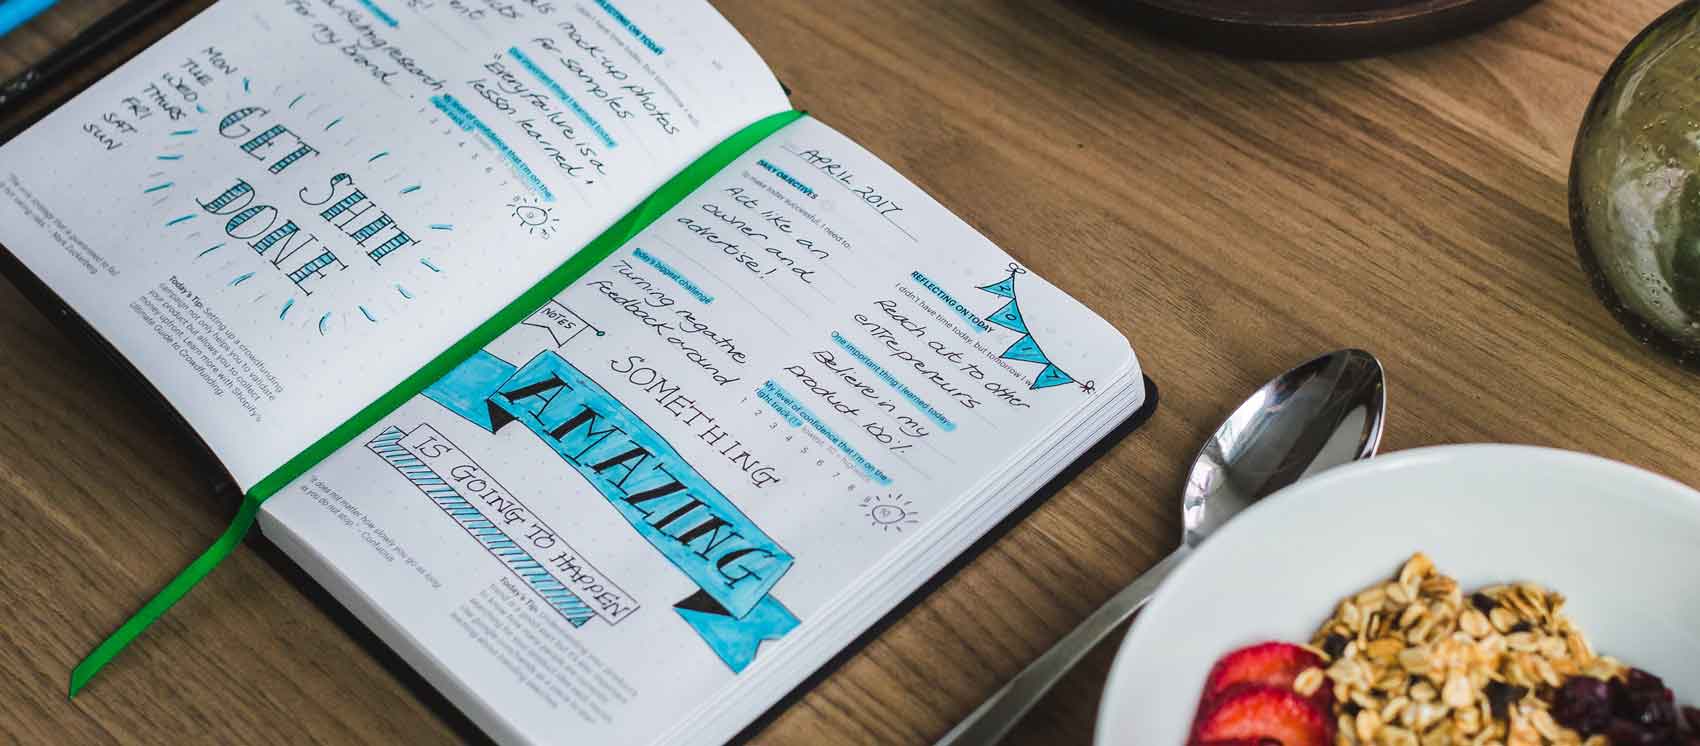 marketing research
for my brand.
mock-up photos
for samples
REFLECTING ON TODAY
One important thing I learned today
"Every failure is a
lesson learned"
My level of confidence that I'm on the
1 2 3 4 5 6 7
MON
TUE
WED
THURS
FRI
SAT
SUN
GET SHIT
DONE
Today's Tip: Setting up a crowdfunding
campaign not only helps you to validate
your product but allows you to collect
money upfront. Learn more with Shopify's
Ultimate Guide to Crowdfunding.
APRIL 2017
DAILY OBJECTIVES
To make today successful, I need to:
Act like an
owner and
advertise!
Today's biggest challenge
Turning negative
feedback around
REFLECTING ON TODAY
I didn't have time today, but tomorrow I w
Reach out to other
entrepeneurs
One important thing I learned today
Believe in my
product 100%
My level of confidence that I'm on the
right track
1 2 3 4 5 6 7 8
10
2017
NOTES
SOMETHING
AMAZING
IS GOING TO HAPPEN
"It does not matter how slowly you go as long
as you do not stop." - Confucius
Today's Tip: